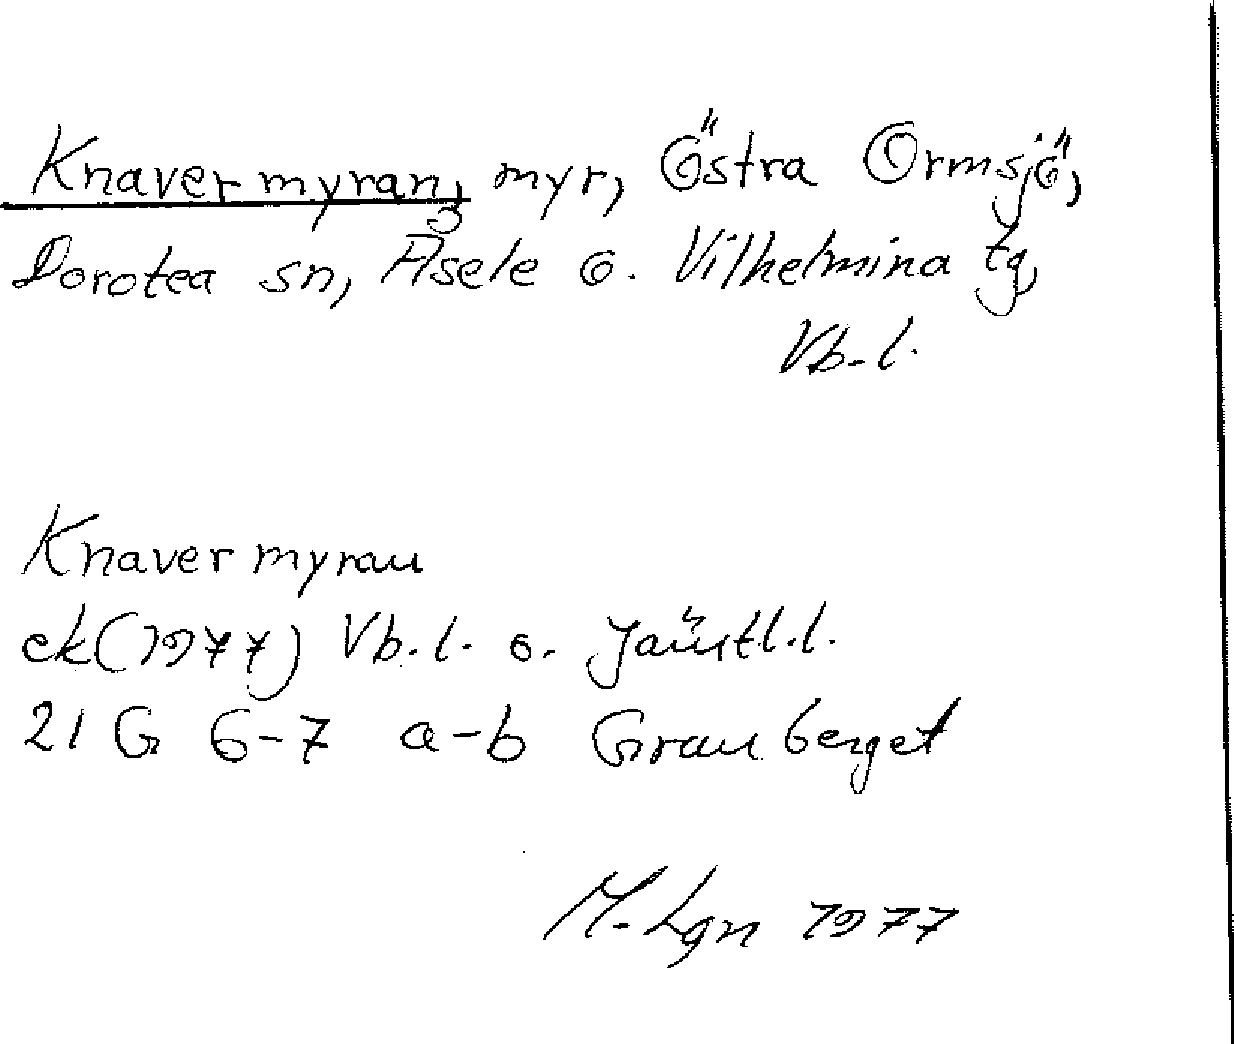 Knavermyran, myr, Östra Ormsjö,
Dorotea sn, Åsele o. Vilhelmina tg,
Vb. l.
Knavermyran
ek (1977) Vb. l. o. Jämtl. l.
21 G 6-7 a-b Granberget
M. Lgn 1977